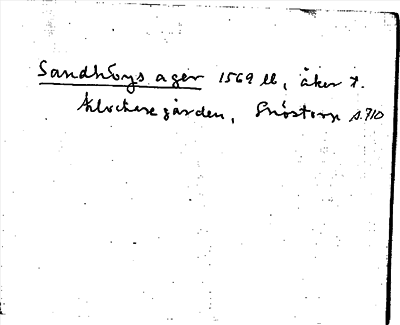 Sandhöys ager 1569 ll, åker t.
Klockaregården, Snöstorp s. 710